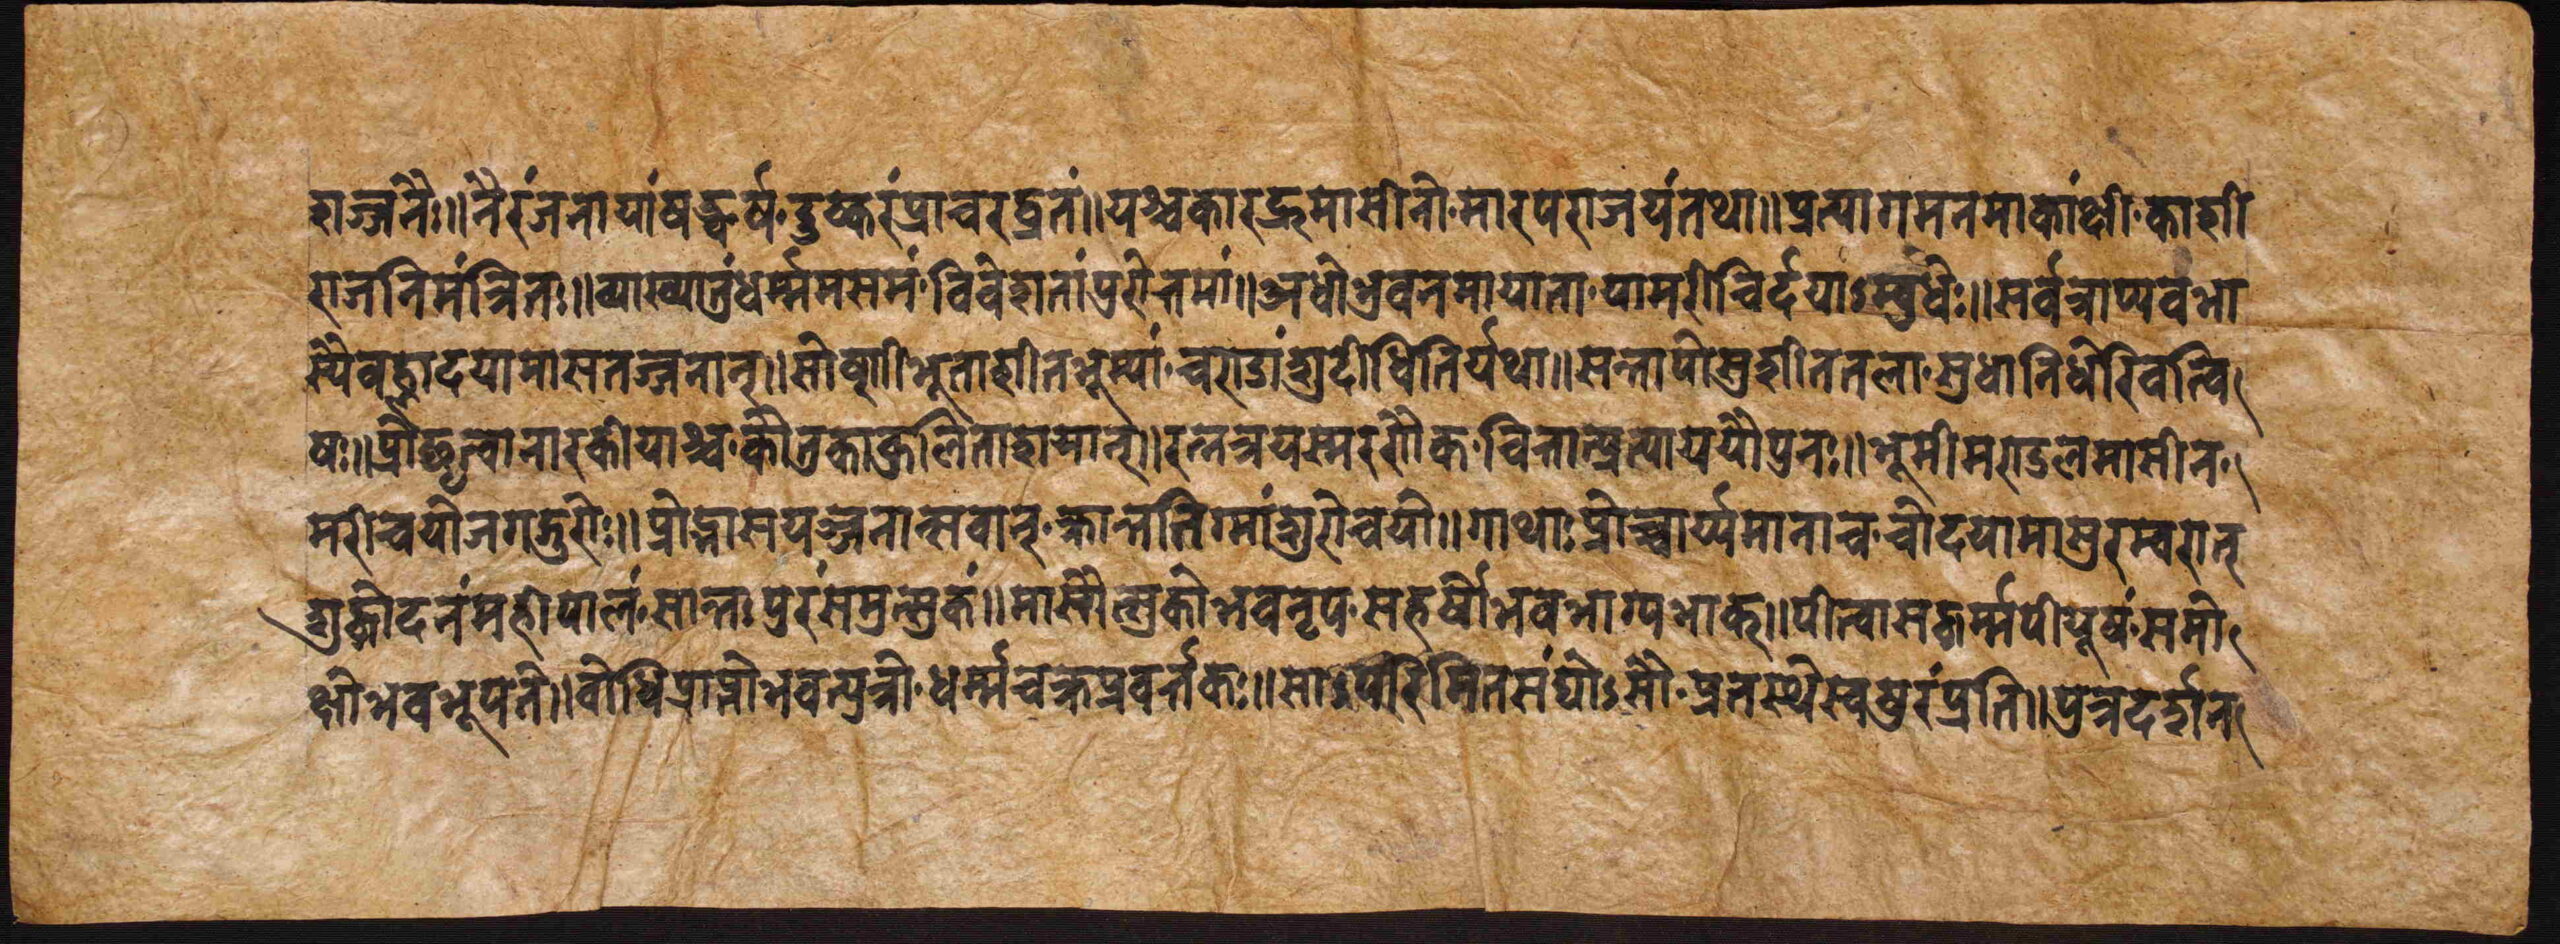 हाज्जनैः॥नैरंजनायांषड्वर्षं॰दुष्करंप्राचरद्व्रतं॥यश्चकारद्रुमासीनो॰मारपराजयंतथा॥प्रत्यागमनमाकांक्षी॰काशी
राजनिमंत्रितः॥व्याख्यातुंधर्म्ममसमं॰विवेशतांपुरोत्तमां॥अधोभुवनमायाता॰यामरीचिर्दयाऽम्बुधेः॥सर्वत्राप्यवभा
स्यैवह्लादयामासतज्जनान्॥सोष्णीभूताशीतभूम्यां॰चण्डांशुदीधितिर्यथा॥सन्तापीसुशीततला॰सुधानिधेरिवत्वि
षः॥प्रोद्धृत्वानारकीयाश्च॰कौतुकाकुलिताशयान्॥रत्नत्रयस्मरणैक॰चित्तान्प्रत्याययौपुनः॥भूमीमण्डलमासीन॰
मरीचयोजगद्गुरोः॥प्रोद्भासयञ्जनान्सर्वान्॰क्रान्ततिग्मांशुरोचयो॥गाथाःप्रोच्चार्य्यमानाच॰चोदयामासुरम्बरात्
शुद्धोदनंमहीपालं॰सान्तःपुरंसमुत्सुकं॥मासोत्सुकोभवनृप॰सहर्षोभवभाग्यभाक्॥पीत्वासद्धर्म्मपीयूषं॰समी
क्षोभवभूपते॥बोधिप्राप्तोभवत्पुत्रो॰धर्म्मचक्रप्रवर्त्तकः॥साऽपरिमितसंघोऽसौ॰प्रतस्थेस्वपुरंप्रति॥पुत्रदर्शन